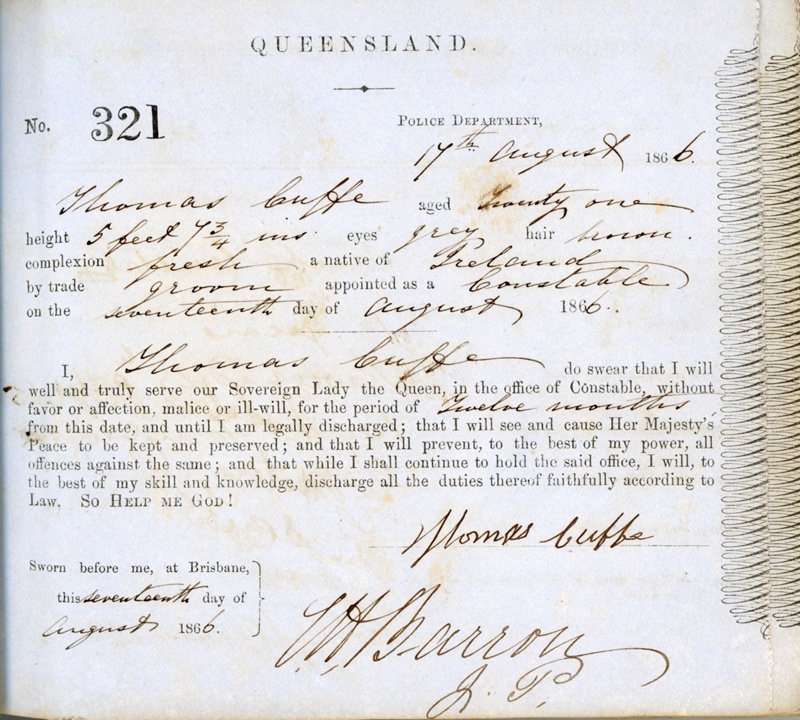 QUEENSLAND.
No. 321
POLICE DEPARTMENT,
17th August 1866.
Thomas Cuffe aged twenty one
height 5 feet 7 3/4 ins. eyes grey hair brown.
complexion fresh a native of Ireland
by trade groom appointed as a Constable
on the seventeenth day of August 1866.
I, Thomas Cuffe do swear that I will
well and truly serve our Sovereign Lady the Queen, in the office of Constable, without
favor or affection, malice or ill-will, for the period of Twelve months,
from this date, and until I am legally discharged; that I will see and cause Her Majesty's
Peace to be kept and preserved; and that I will prevent, to the best of my power, all
offences against the same; and that while I shall continue to hold the said office, I will, to
the best of my skill and knowledge, discharge all the duties thereof faithfully according to
Law. SO HELP ME GOD!
Thomas Cuffe
Sworn before me, at Brisbane,
this seventeenth day of
August 1866.
Barron
J. P.